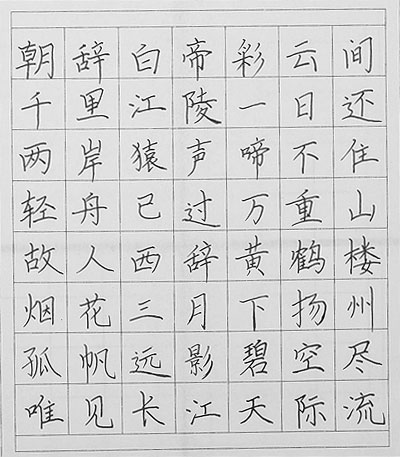 朝辞白帝彩云间
千里江陵一日还
两岸猿声啼不住
轻舟已过万重山
故人西辞黄鹤楼
烟花三月下扬州
孤帆远影碧空尽
唯见长江天际流